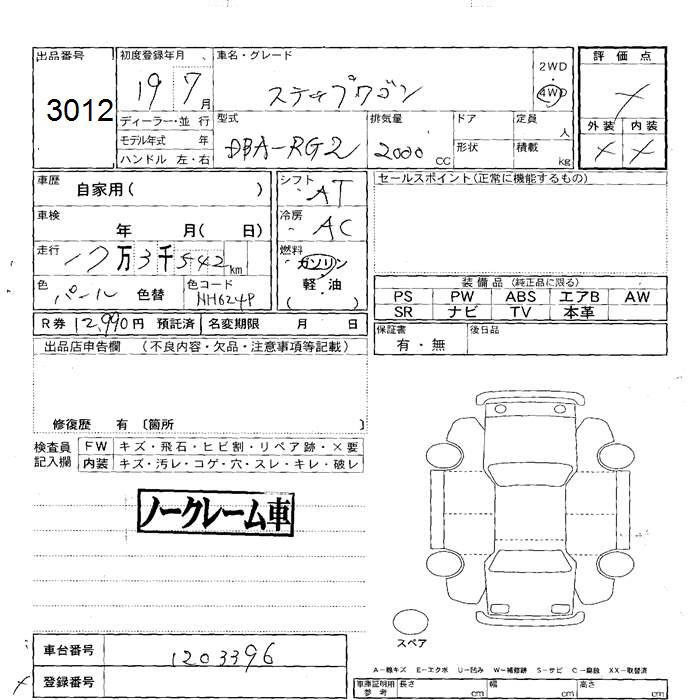 出品番号 3012
初度登録年月 19 7月
車名・グレード ステップワゴン
2WD
4WD
評価点
外装 内装
ディーラー・並行
モデル年式 年
ハンドル 左・右
型式 DBA-RG2
排気量 2000 CC
ドア
形状
定員 人
積載 kg
車歴 自家用( )
車検 年 月( 日)
走行 17万3千542km
色 パール 色替
色コード NH624P
シフト AT
冷房 AC
燃料 ガソリン
軽・油
( )
セールスポイント(正常に機能するもの)
装備品 (純正品に限る)
PS PW ABS エアB AW
SR ナビ TV 本革
保証書 有・無
後日品
R券 12,990円 預託済 名変期限 月 日
出品店申告欄 (不良内容・欠品・注意事項等記載)
修復歴 有 〔箇所 〕
検査員記入欄
FW キズ・飛石・ヒビ割・リペア跡・×要
内装 キズ・汚レ・コゲ・穴・スレ・キレ・破レ
ノークレーム車
スペア
車台番号 1203396
登録番号
A-線キズ E-エクボ U-凹み W-補修跡 S-サビ C-腐蝕 XX-取替済
車庫証明用参考 長さ cm 幅 cm 高さ cm